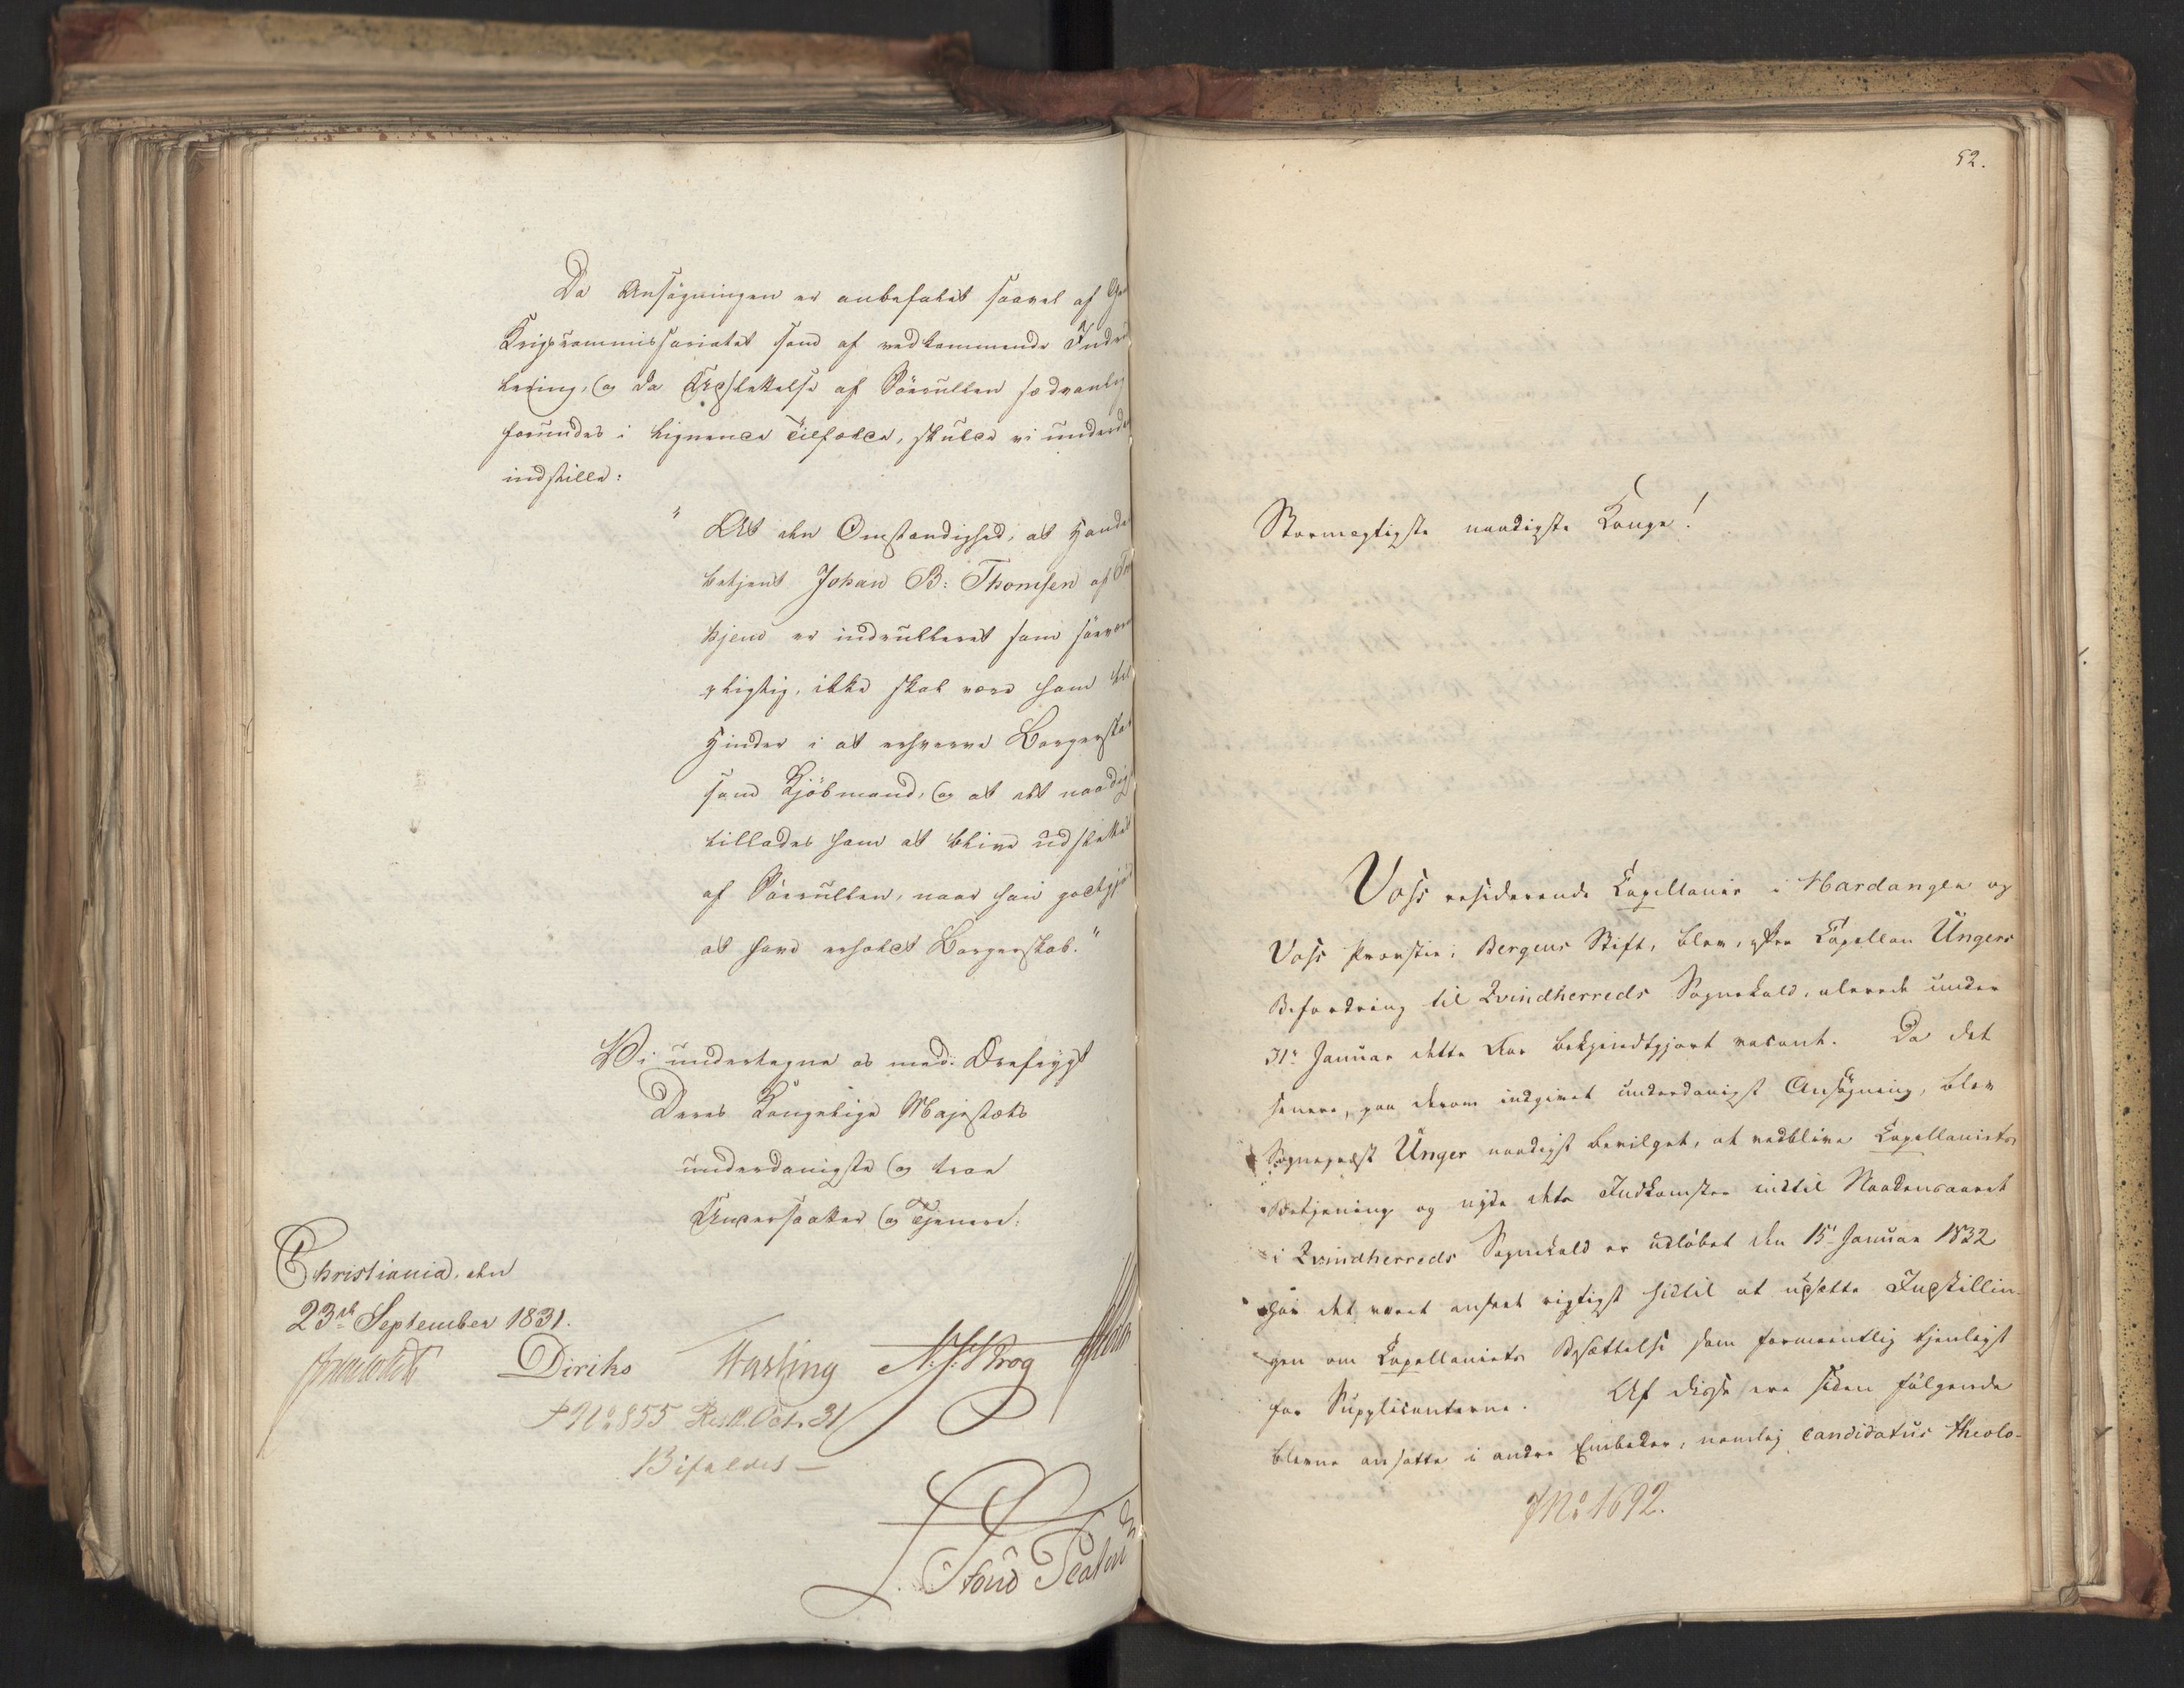 Da Ansøgningen er anbefalet saavel af
Krigscommissariatet som af vedkommende Indrul
lering, og da Udslettelse af Sørullen sædvanlig
forundes i lignende Tilfælde, skulde vi underd
indstille:
"At den Omstændighed, at Hande
betjent Johan B: Thomsen af
hjem er indrulleret som søevern
pligtig, ikke skal være ham til
Hinder i at erhverve Borgerska
som Kjøbmand, og at det naadig
tillades ham at blive udslettet
af Søerullen, naar han godtgjør
at have erholdt Borgerskab."
Vi undertegne os med Ærefrygt
Deres Kongelige Majestæts
underdanigste og troe
Undersaatter og Tjenere.
Christiania, den
23de September 1831.
Diriks Hasting N. J. Krog
No 855 Rest. Oct. 31
Bifaldes —
52.
Stormægtigste naadigste Konge!
Voss residerende Capellanie i Hardanger og
Voss Provstie i Bergens Stift, blev, efter Capellan Ungers
Befordring til Qvindherreds Sognekald, allerede under
31te Januar dette Aar bekjendtgjort vacant. Da det
senere, paa derom indgivet underdanigst Ansøgning, blev
Sognepræst Unger naadigst bevilget, at vedblive Capellaniets
Betjening og nyde dets Indkomster indtil Naadensaaret
i Qvindherreds Sognekald er udløbet den 15de Januar 1832
har det været anseet rigtigst hidtil at udsætte Indstillin-
gen om Capellaniets Besættelse som formeentlig tjenligst
for Supplicanterne. Af disse ere siden følgende
blevne ansatte i andre Embeder, nemlig Candidatus theolo-
JNo 1692.